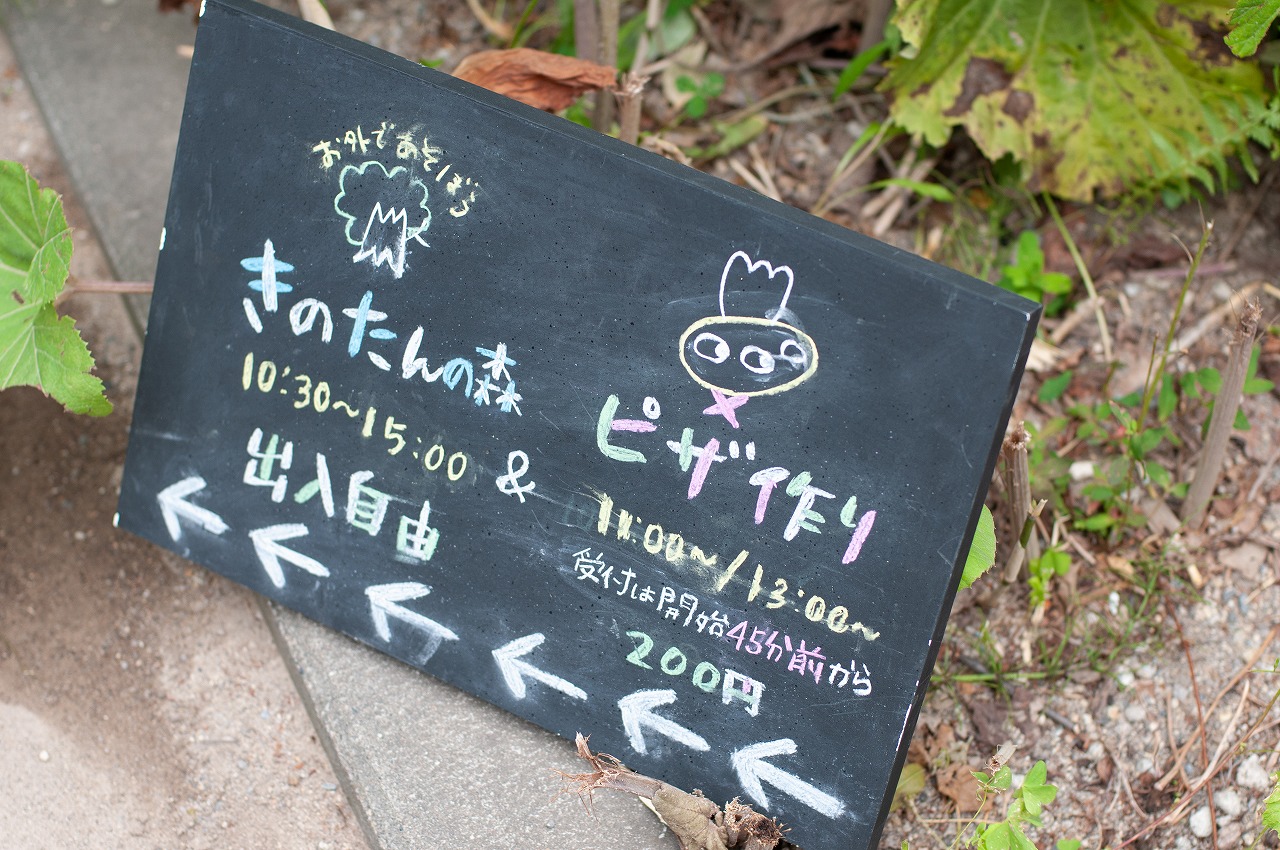 お外であそぼう
きのたんの森
10:30〜15:00
出入自由
&
ピザ作り
11:00〜/13:00〜
受付は開始45分前から
200円